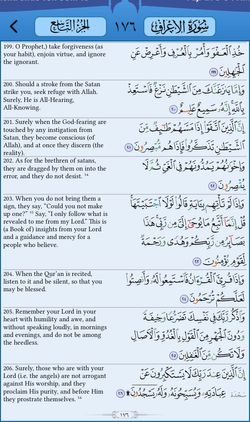 الجزء التاسع ١٧٦ سورة الأعراف
199. O Prophet,) take forgiveness (as
your habit), enjoin virtue, and ignore
the ignorant.
خُذِ ٱلْعَفْوَ وَأْمُرْ بِٱلْعُرْفِ وَأَعْرِضْ عَنِ
ٱلْجَٰهِلِينَ
200. Should a stroke from the Satan
strike you, seek refuge with Allah.
Surely, He is All-Hearing,
All-Knowing.
وَإِمَّا يَنزَغَنَّكَ مِنَ ٱلشَّيْطَٰنِ نَزْغٌ فَٱسْتَعِذْ
بِٱللَّهِ إِنَّهُۥ سَمِيعٌ عَلِيمٌ
201. Surely when the God-fearing are
touched by any instigation from
Satan, they become conscious (of
Allah), and at once they discern (the
reality).
إِنَّ ٱلَّذِينَ ٱتَّقَوْا۟ إِذَا مَسَّهُمْ طَٰٓئِفٌ مِّنَ
ٱلشَّيْطَٰنِ تَذَكَّرُوا۟ فَإِذَا هُم مُّبْصِرُونَ
202. As for the brethren of satans,
they are dragged by them on into the
error, and they do not desist.
وَإِخْوَٰنُهُمْ يَمُدُّونَهُمْ فِى ٱلْغَىِّ ثُمَّ لَا
يُقْصِرُونَ
203. When you do not bring them a
sign, they say, "Could you not make
up one?" Say, "I only follow what is
revealed to me from my Lord." This is
(a Book of) insights from your Lord
and a guidance and mercy for a
people who believe.
وَإِذَا لَمْ تَأْتِهِم بِـَٔايَةٍ قَالُوا۟ لَوْلَا ٱجْتَبَيْتَهَا
قُلْ إِنَّمَآ أَتَّبِعُ مَا يُوحَىٰٓ إِلَىَّ مِن رَّبِّى هَٰذَا
بَصَآئِرُ مِن رَّبِّكُمْ وَهُدًى وَرَحْمَةٌ
لِّقَوْمٍ يُؤْمِنُونَ
204. When the Qur'an is recited,
listen to it and be silent, so that you
may be blessed.
وَإِذَا قُرِئَ ٱلْقُرْءَانُ فَٱسْتَمِعُوا۟ لَهُۥ وَأَنصِتُوا۟
لَعَلَّكُمْ تُرْحَمُونَ
205. Remember your Lord in your
heart with humility and awe, and
without speaking loudly, in mornings
and evenings, and do not be among
the heedless.
وَٱذْكُر رَّبَّكَ فِى نَفْسِكَ تَضَرُّعًا وَخِيفَةً
وَدُونَ ٱلْجَهْرِ مِنَ ٱلْقَوْلِ بِٱلْغُدُوِّ وَٱلْءَاصَالِ
وَلَا تَكُن مِّنَ ٱلْغَٰفِلِينَ
206. Surely, those who are with your
Lord (i.e. the angels) are not arrogant
against His worship, and they
proclaim His purity, and before Him
they prostrate themselves.
إِنَّ ٱلَّذِينَ عِندَ رَبِّكَ لَا يَسْتَكْبِرُونَ عَنْ
عِبَادَتِهِۦ وَيُسَبِّحُونَهُۥ وَلَهُۥ يَسْجُدُونَ
١٧٦